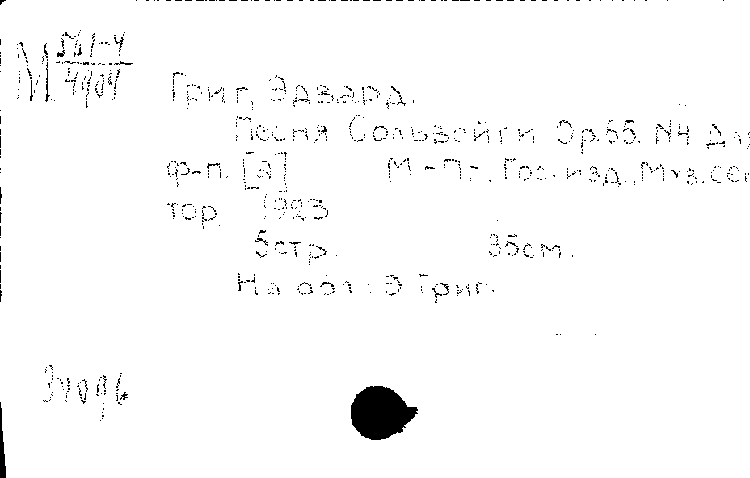 М 51-4
4904
Григ, Эдвард.
Песня Сольвейги Op.55. N4 Для
ф-п. [а] М-П-г. Гос.изд., Муз.сек
тор. 1923
5стр. 35см.
На обл: Э Григ.
34096